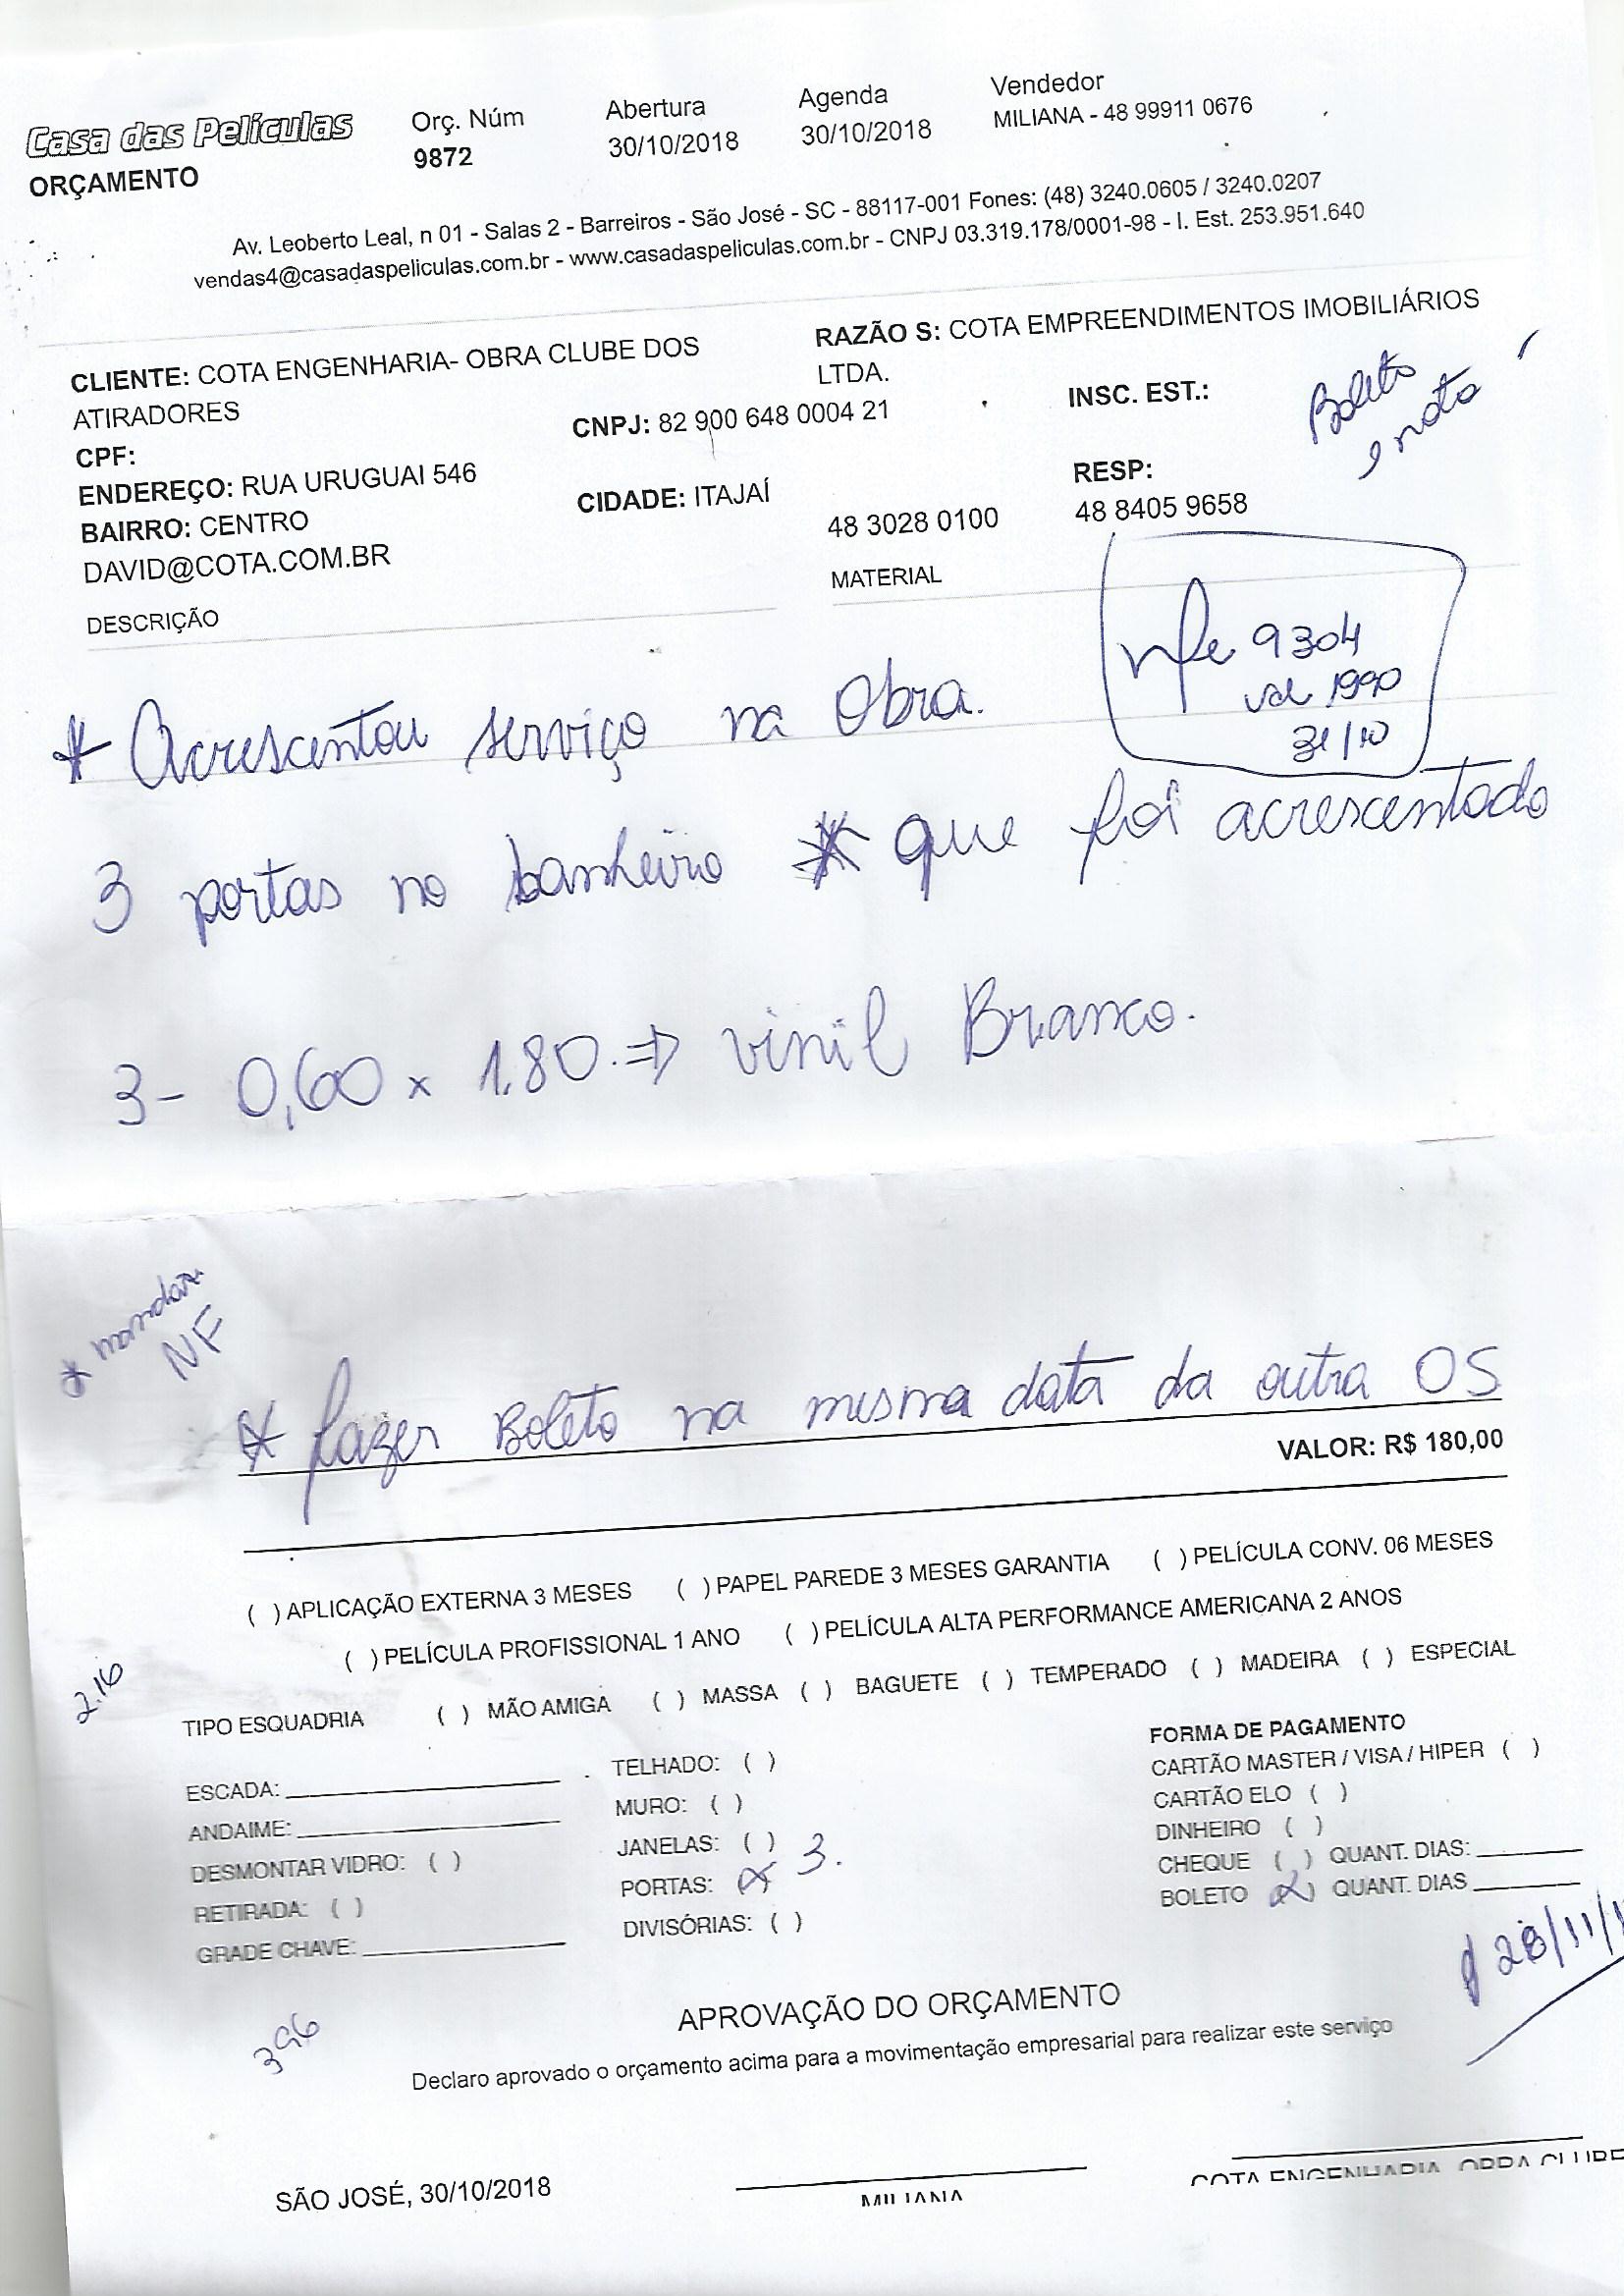 Casa das Películas
ORÇAMENTO
Orç. Núm
9872
Abertura
30/10/2018
Agenda
30/10/2018
Vendedor
MILIANA - 48 99911 0676
Av. Leoberto Leal, n 01 - Salas 2 - Barreiros - São José - SC - 88117-001 Fones: (48) 3240.0605 / 3240.0207
vendas4@casadaspeliculas.com.br - www.casadaspeliculas.com.br - CNPJ 03.319.178/0001-98 - I. Est. 253.951.640
CLIENTE: COTA ENGENHARIA- OBRA CLUBE DOS
ATIRADORES
RAZÃO S: COTA EMPREENDIMENTOS IMOBILIÁRIOS
LTDA.
CPF:
CNPJ: 82 900 648 0004 21
INSC. EST.:
Boleto
e nota
ENDEREÇO: RUA URUGUAI 546
BAIRRO: CENTRO
CIDADE: ITAJAÍ
RESP:
DAVID@COTA.COM.BR
48 3028 0100
48 8405 9658
DESCRIÇÃO
MATERIAL
nfe 9304
1990
31/10
* Acrescentou serviço na Obra.
3 portas no banheiro * que foi acrescentado
3- 0,60 x 1.80. ⇒ vinil Branco.
* mandar
NF
* fazer Boleto na mesma data da outra OS
VALOR: R$ 180,00
( ) APLICAÇÃO EXTERNA 3 MESES ( ) PAPEL PAREDE 3 MESES GARANTIA ( ) PELÍCULA CONV. 06 MESES
( ) PELÍCULA PROFISSIONAL 1 ANO ( ) PELÍCULA ALTA PERFORMANCE AMERICANA 2 ANOS
2.16
TIPO ESQUADRIA ( ) MÃO AMIGA ( ) MASSA ( ) BAGUETE ( ) TEMPERADO ( ) MADEIRA ( ) ESPECIAL
ESCADA:
ANDAIME:
DESMONTAR VIDRO: ( )
RETIRADA: ( )
GRADE CHAVE:
TELHADO: ( )
MURO: ( )
JANELAS: ( )
PORTAS: (x) 3.
DIVISÓRIAS: ( )
FORMA DE PAGAMENTO
CARTÃO MASTER / VISA / HIPER ( )
CARTÃO ELO ( )
DINHEIRO ( )
CHEQUE ( ) QUANT. DIAS:
BOLETO (x) QUANT. DIAS
28/11/1
396
APROVAÇÃO DO ORÇAMENTO
Declaro aprovado o orçamento acima para a movimentação empresarial para realizar este serviço
SÃO JOSÉ, 30/10/2018
MILIANA
COTA ENGENHARIA- OBRA CLUBE